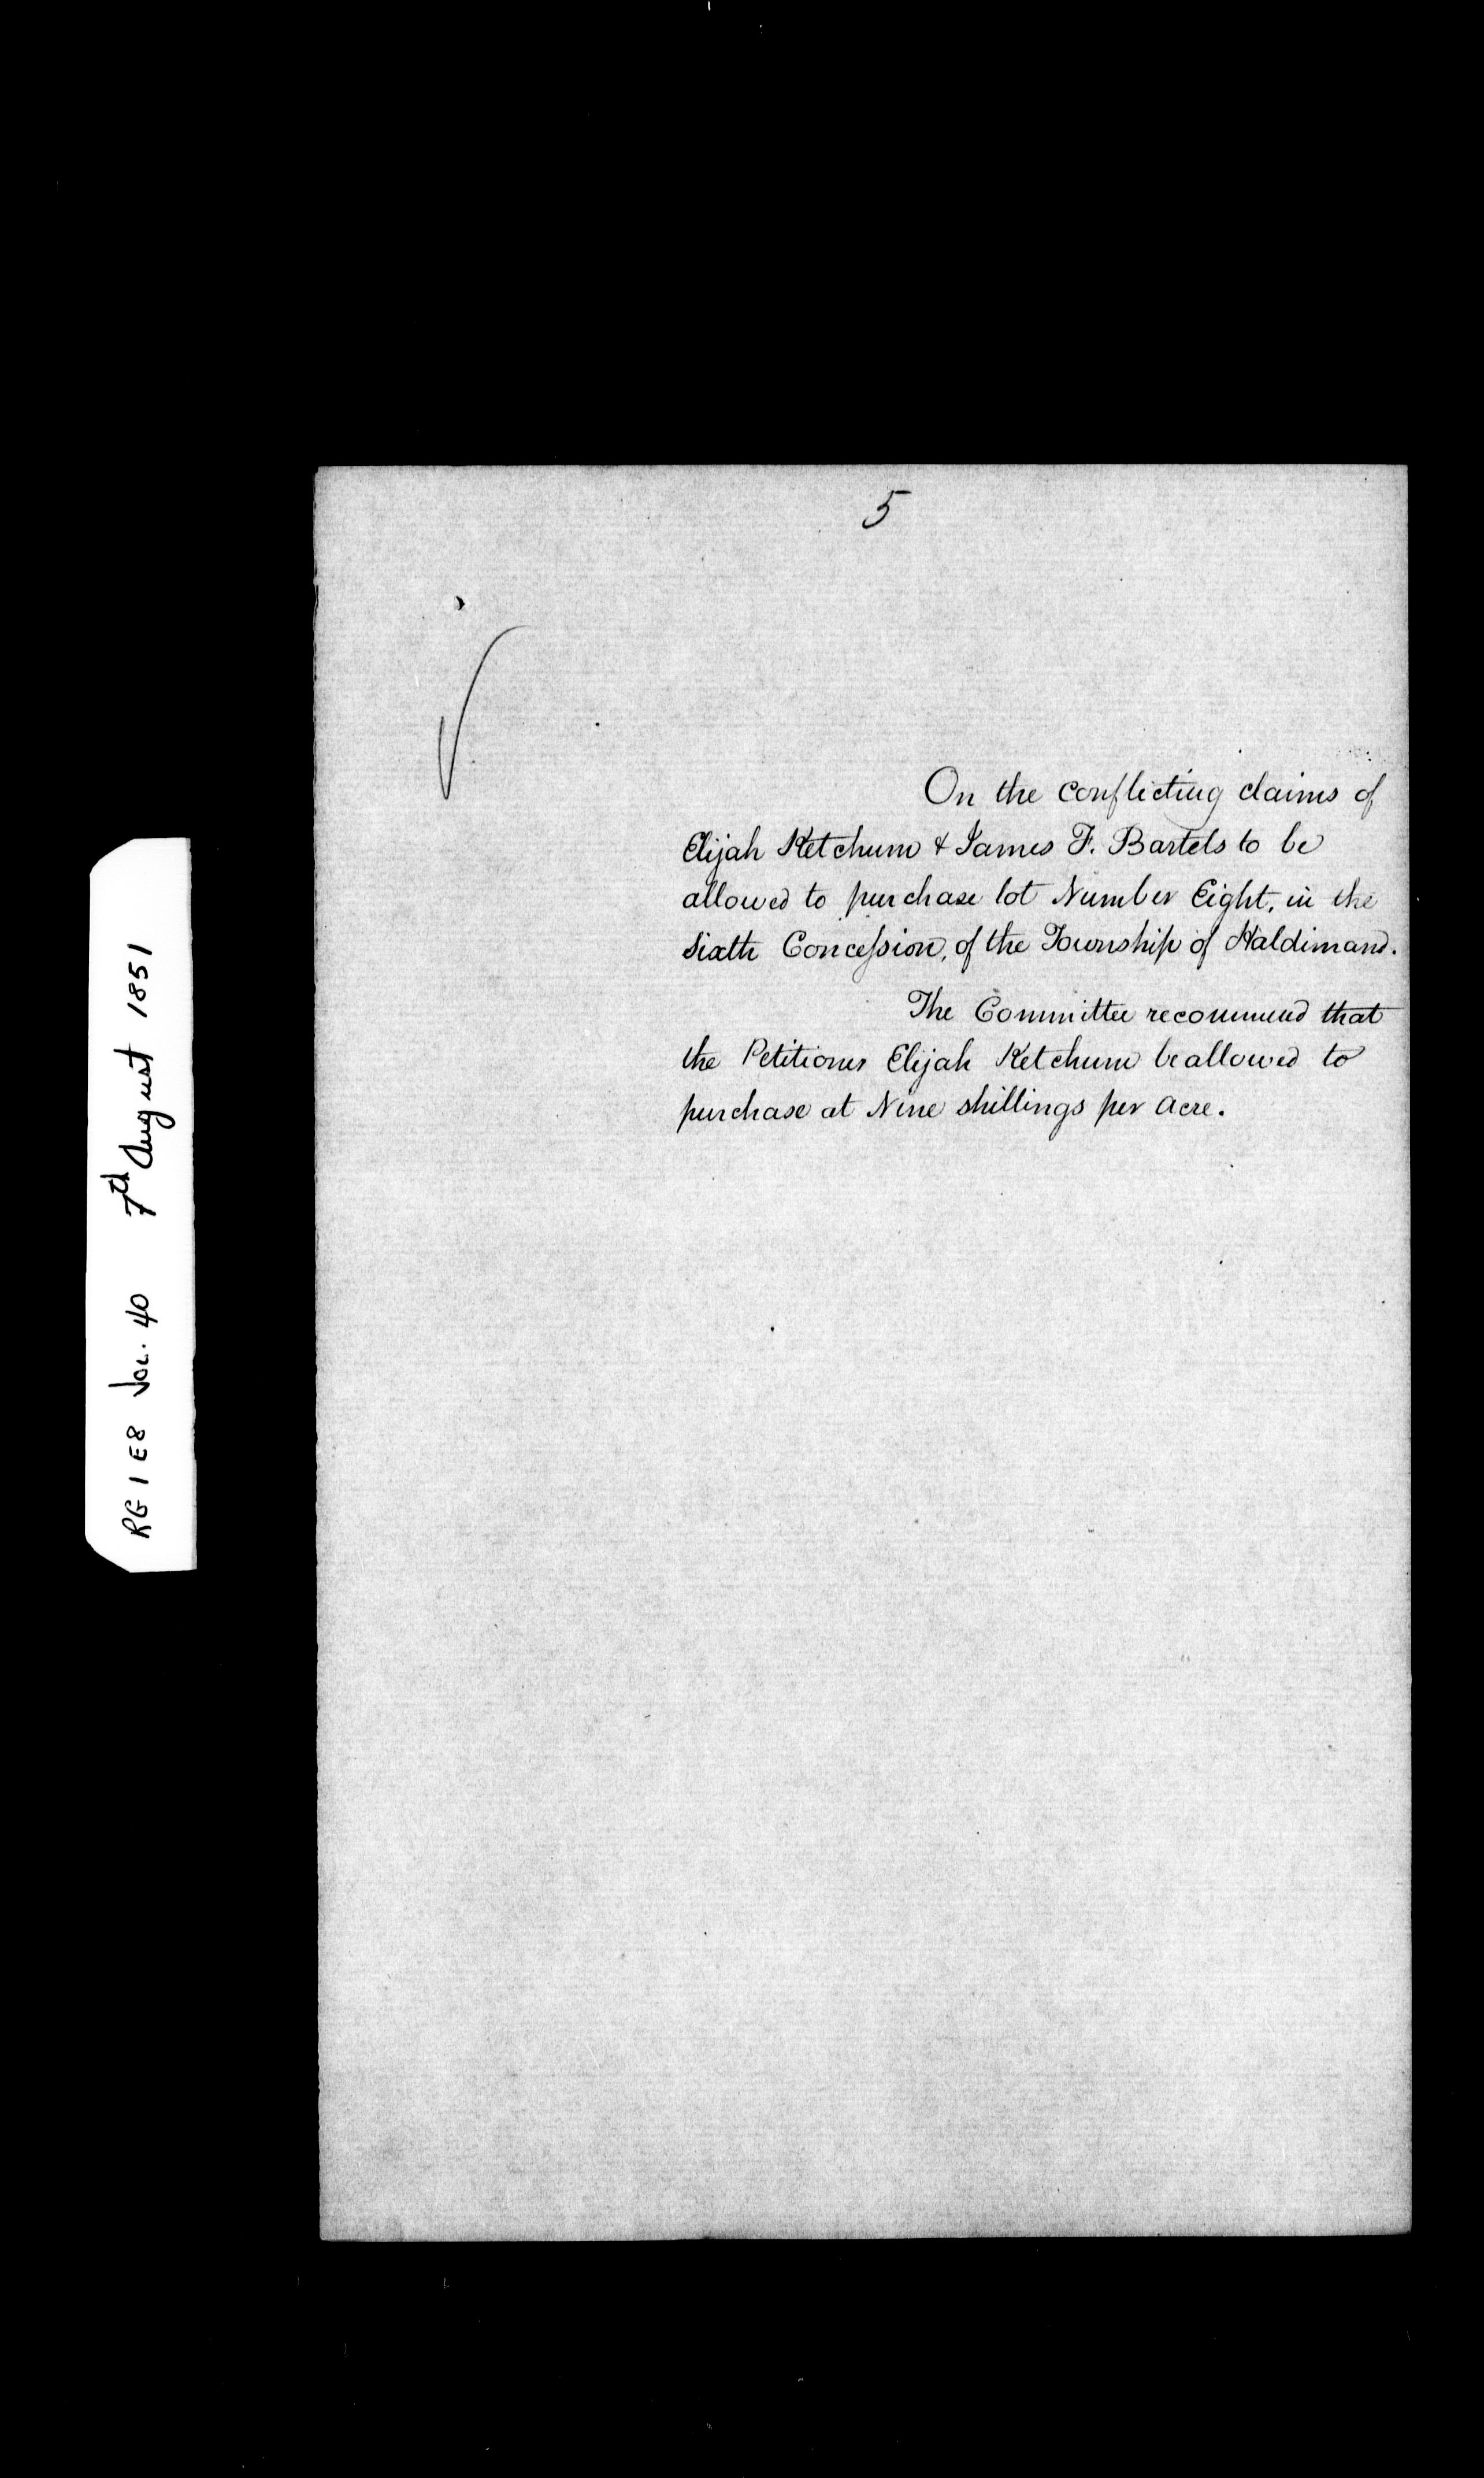 5
On the conflicting claims of
Elijah Ketchum & James F. Bartels to be
allowed to purchase lot Number Eight, in the
sixth Concession, of the Township of Haldimand.
The Committee recommend that
the Petitioner Elijah Ketchum be allowed to
purchase at Nine shillings per acre.
RG 1 E8 Vol. 40 7th August 1851